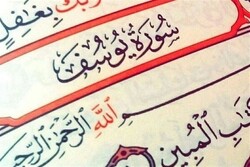 ربك بغفل
سُورَةُ يُوسُفَ
اللَّهِ الرَّحْمَٰنِ الرَّحِي
تَٰبِ الْمُبِينِ